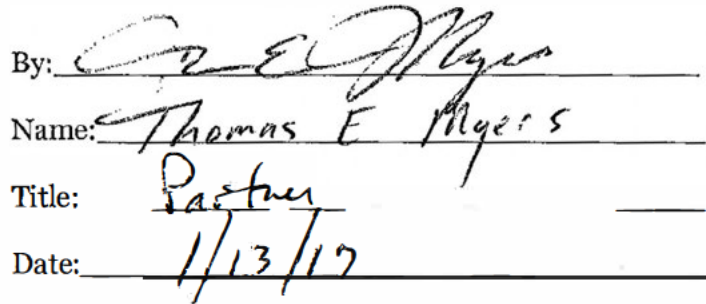 By: E Myers
Name: Thomas E Myers
Title: Partner
Date: 1/13/17